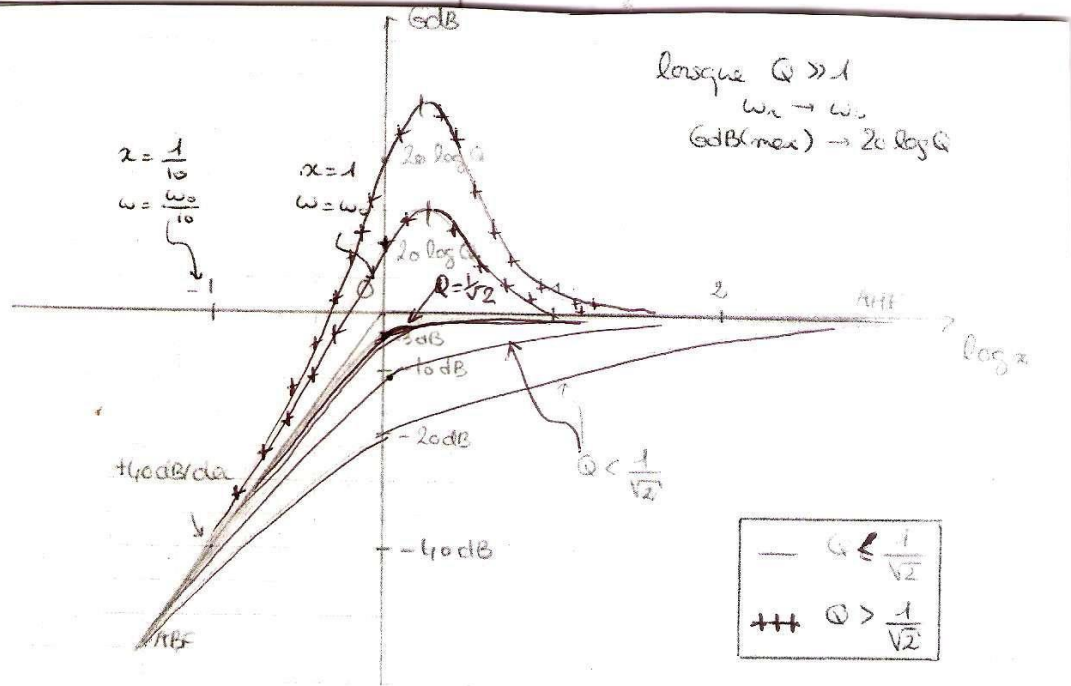 GdB
lorsque Q >> 1
ωr → ω₀
GdB(max) → 20 log Q
x = 1/10
ω = ω₀/10
x = 1
ω = ω₀
20 log Q
20 log Q
Q = 1/√2
-1
0
2
AHF
log x
-3dB
-10dB
-20dB
Q < 1/√2
+40dB/dec
-40dB
ABF
— Q ≤ 1/√2
+++ Q > 1/√2